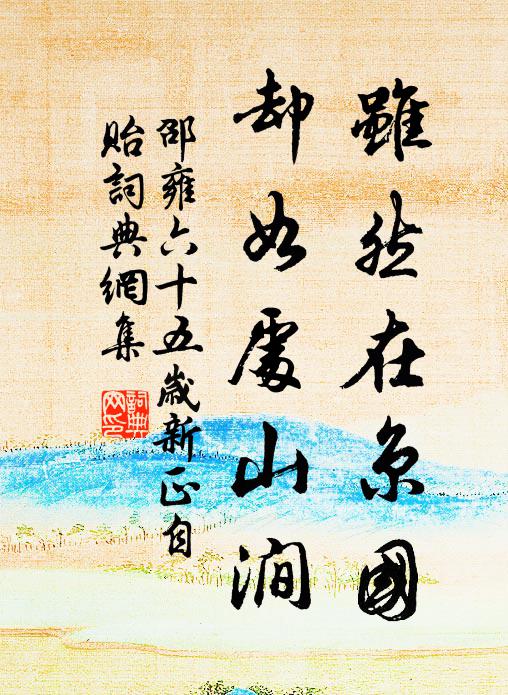 雖然在京國
却如處山澗
邵雍六十五歲新正自
貽詞典網集
詞典
网印